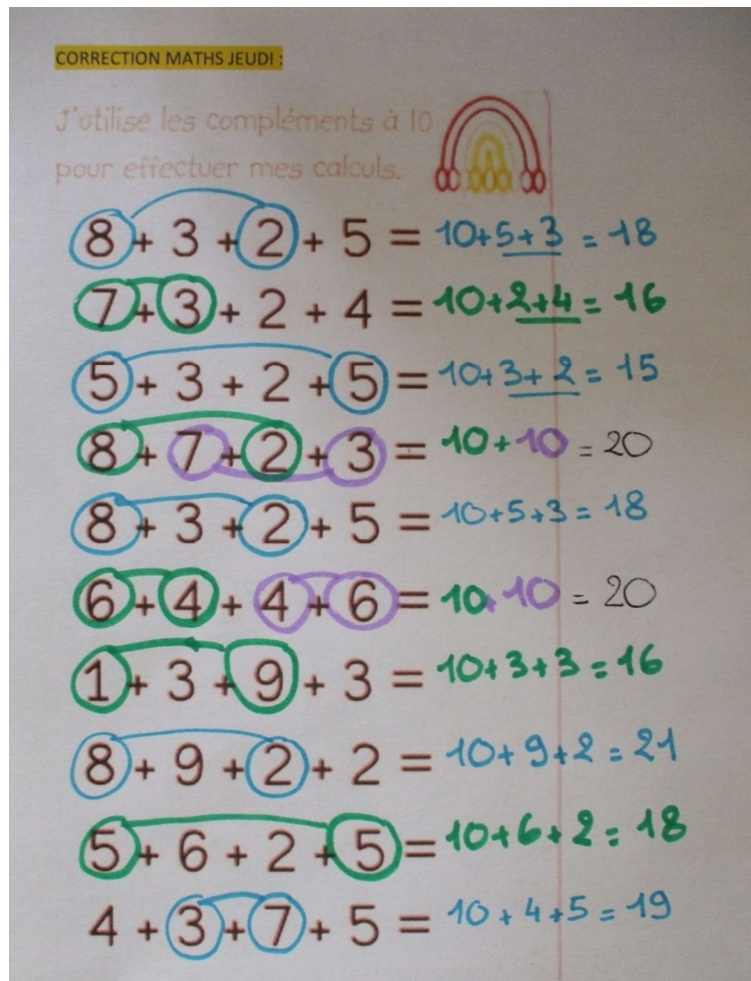 CORRECTION MATHS JEUDI :
J'utilise les compléments à 10
pour effectuer mes calculs.
8 + 3 + 2 + 5 = 10+5+3 = 18
7 + 3 + 2 + 4 = 10+2+4 = 16
5 + 3 + 2 + 5 = 10+3+2 = 15
8 + 7 + 2 + 3 = 10+10 = 20
8 + 3 + 2 + 5 = 10+5+3 = 18
6 + 4 + 4 + 6 = 10+10 = 20
1 + 3 + 9 + 3 = 10+3+3 = 16
8 + 9 + 2 + 2 = 10+9+2 = 21
5 + 6 + 2 + 5 = 10+6+2 = 18
4 + 3 + 7 + 5 = 10+4+5 = 19